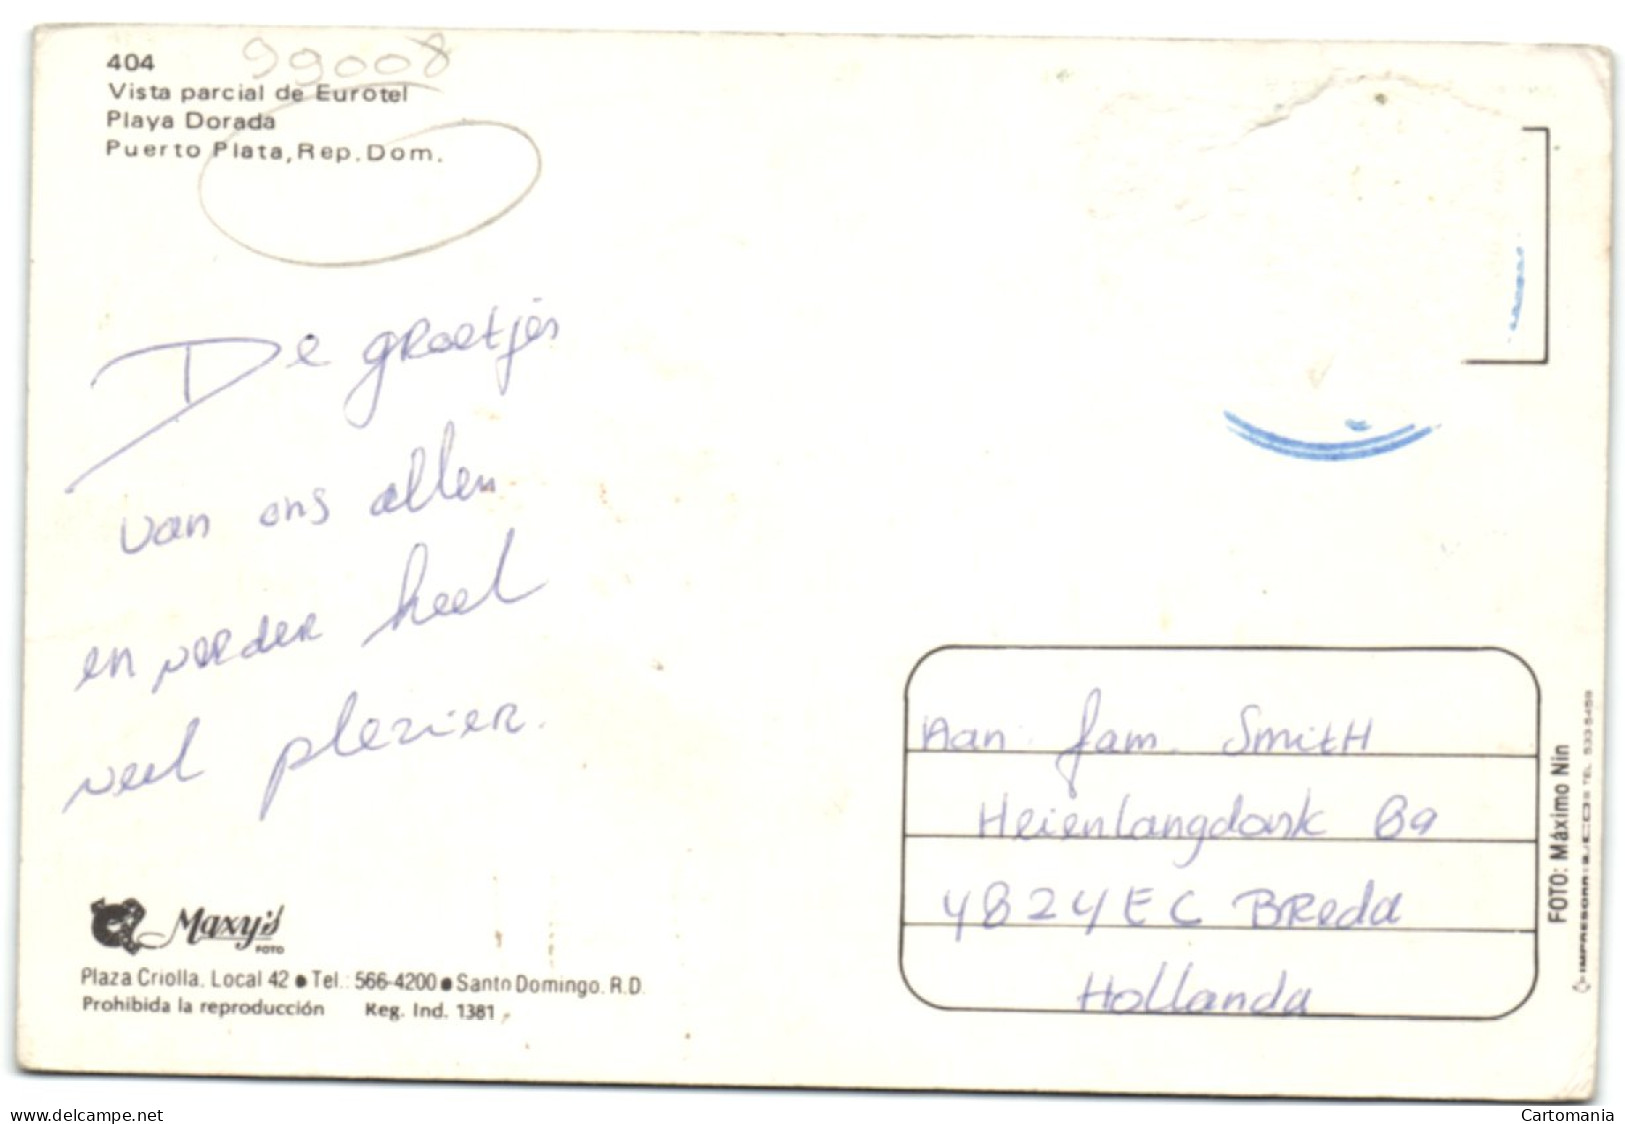 99008
404
Vista parcial de Eurotel
Playa Dorada
Puerto Plata, Rep. Dom.
De groetjes
van ons allen
en verder heel
veel plezier.
Aan fam. Smith
Heienlangdonk
4824EC Breda
Hollanda
Maxy's
FOTO
Plaza Criolla. Local 42 ● Tel.: 566-4200 ● Santo Domingo. R.D.
Prohibida la reproducción Reg. Ind. 1381
FOTO: Máximo Nin
delcampe.net
Cartomania